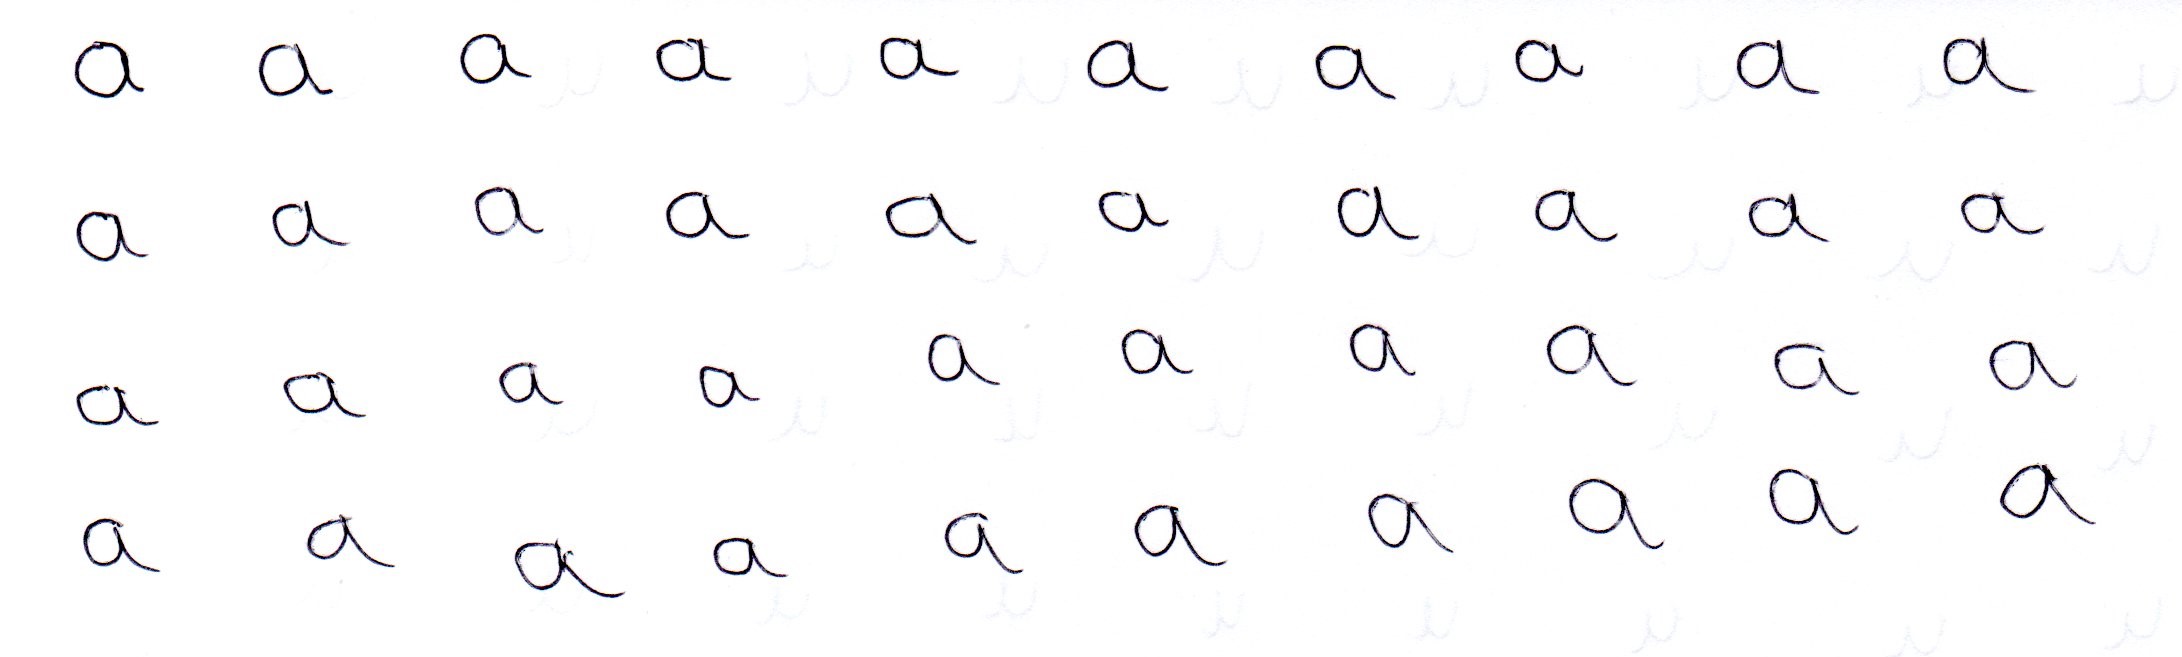 a a a a a a a a a a
a a a a a a a a a a
a a a a a a a a a a
a a a a a a a a a a